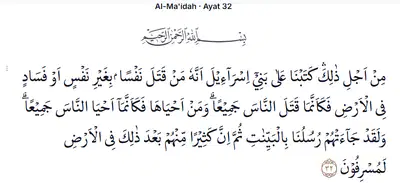 Al-Ma'idah · Ayat 32
بِسْمِ اللّٰهِ الرَّحْمٰنِ الرَّحِيْمِ
مِنْ اَجْلِ ذٰلِكَ ۛ كَتَبْنَا عَلٰى بَنِيْٓ اِسْرَاۤءِيْلَ اَنَّهٗ مَنْ قَتَلَ نَفْسًاۢ بِغَيْرِ نَفْسٍ اَوْ فَسَادٍ
فِى الْاَرْضِ فَكَاَنَّمَا قَتَلَ النَّاسَ جَمِيْعًاۗ وَمَنْ اَحْيَاهَا فَكَاَنَّمَآ اَحْيَا النَّاسَ جَمِيْعًاۗ
وَلَقَدْ جَاۤءَتْهُمْ رُسُلُنَا بِالْبَيِّنٰتِ ثُمَّ اِنَّ كَثِيْرًا مِّنْهُمْ بَعْدَ ذٰلِكَ فِى الْاَرْضِ
لَمُسْرِفُوْنَ ٣٢